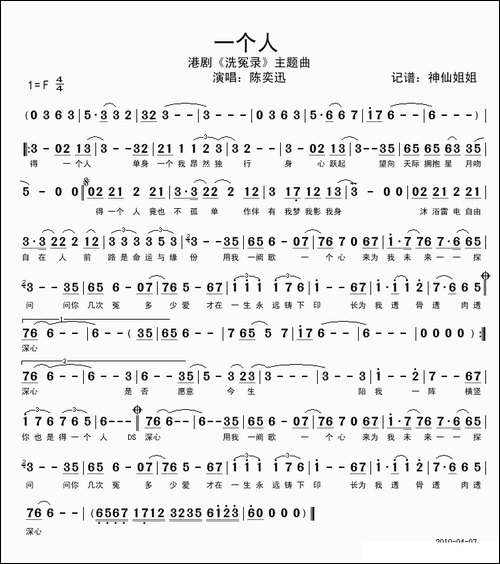 一个人
港剧《洗冤录》主题曲
1=F 4/4 演唱：陈奕迅 记谱：神仙姐姐
(0 3 6 3 | 5·3 3 2 | 32 3 - - | 3 - - - | 0 3 6 3 | 5·6 6 7 | i 7 6 - - | 6 - - - )
‖: 3 - 02 13 | 3 - - 32 | 21 1 1 2 3 | 3 - 02 13 | 3 - 02 13 | 3 - 35 65 | 3 - 35 67
得 一个人 单身 一个我昂然独 行 身 心跃起 望向 天际拥抱星 月吻
5 - 0 0 ‖ 02 21 2 21 | 3·3 21 2 | 02 3 17 12 13 | 3 - 0 0 | 02 21 2 21
得一个人 竟也 不孤单 作伴有我梦我影我身 沐浴雷电自由
3·3 22 2 12 | 3 3 3 3 5 3 | 3 - - 35 | 65 6 - 07 | 76 7 0 67 | i·7 76 | i·7 6 5
自在人前 路是命运与缘份 用我一阙歌 一个心 来为我未来一一探
3 - - 35 | 65 6 - 07 | 76 5 6 67 | i i i 1 7 6 | 5 - 35 67 | i - i i i 2 | 7·6 65
问 问你几次冤 多少爱才在一生永远铸下印 长为我透骨透肉透
76 6 - - | 6 - - ( 35 | 65 65 6 - | 7 65 5 | i 7 65 6 - | 0 0 0 0 ) :‖
深心
76 6 - - | 6 - - 3 | 6 - - 3 | 35 - 5 - 3 23 | 3 - - - | 3 - - 3 | 6 - - 3 | 2 3 2 3
深心 是否愿意今生 陪我一阵横竖
i 76 76 5 | 6 - - - ‖ 76 6 - - | 6 - - 35 | 65 6 - 07 | 76 7 0 67 | i·7 76 | i·7 6 65
你也是得一个人 DS 深心 用我一阙歌 一个心 来为我未来一一探
3 - - 35 | 65 6 - 07 | 76 5 6 67 | i i i 1 7 6 | 5 - 35 67 | i - i i i 2 | 7·6 65
问 问你几次冤 多少爱才在一生永远铸下印 长为我透骨透肉透
76 6 - - | 6 - - - | (6567 1712 3235 6123 | 60000 )‖
深心
2010-04-07